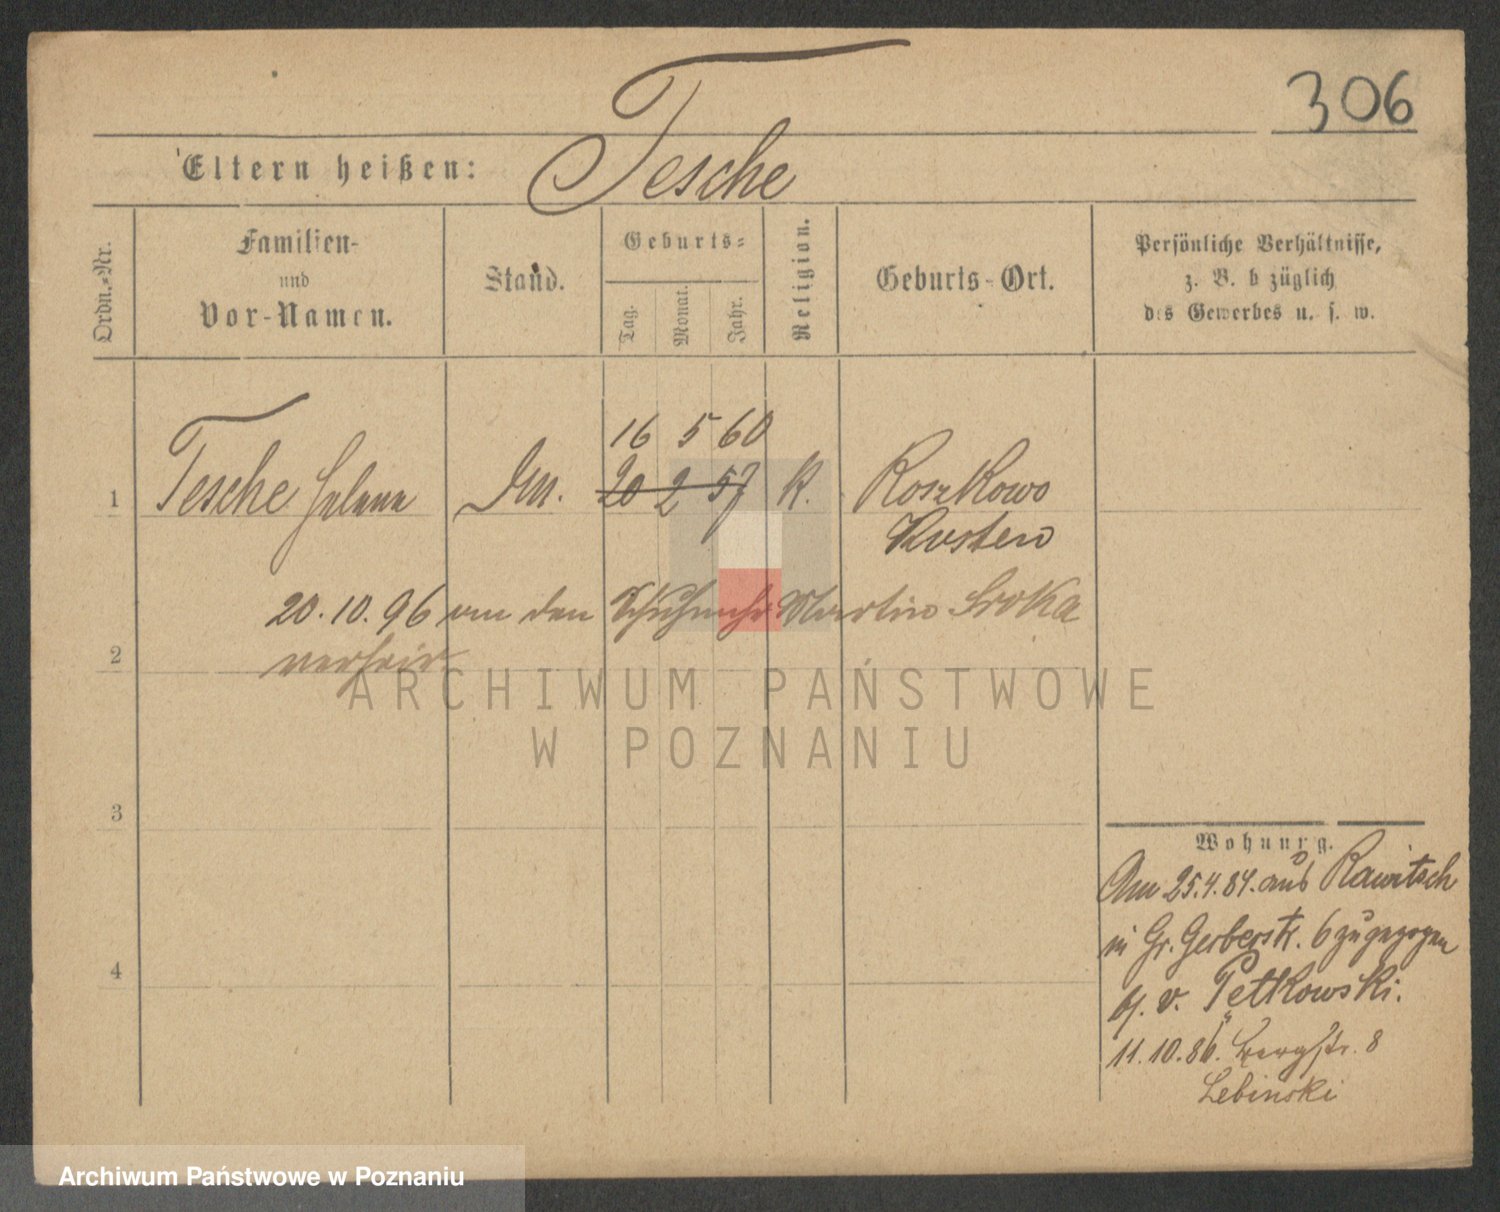 306
Eltern heißen: Tesche
Ordn.-Nr.
Familien-
und
Vor-Namen.
Stand.
Geburts-
Tag.
Monat.
Jahr.
Religion.
Geburts-Ort.
Persönliche Verhältnisse,
z. B. bezüglich
des Gewerbes u. s. w.
16 5 60
1 Tesche Helena 20 2 57 k. Roszkowo
Kosten
20.10.96 an den Schuhmchr Martin Sroka
2 verheir
ARCHIWUM PAŃSTWOWE
W POZNANIU
3
Wohnung.
Am 25.4.84. aus Rawitsch
4 in Gr. Gerberstr. 6 zugezogen
b. v. Petkowski.
11.10.86. Bergstr. 8
Lebinski
Archiwum Państwowe w Poznaniu